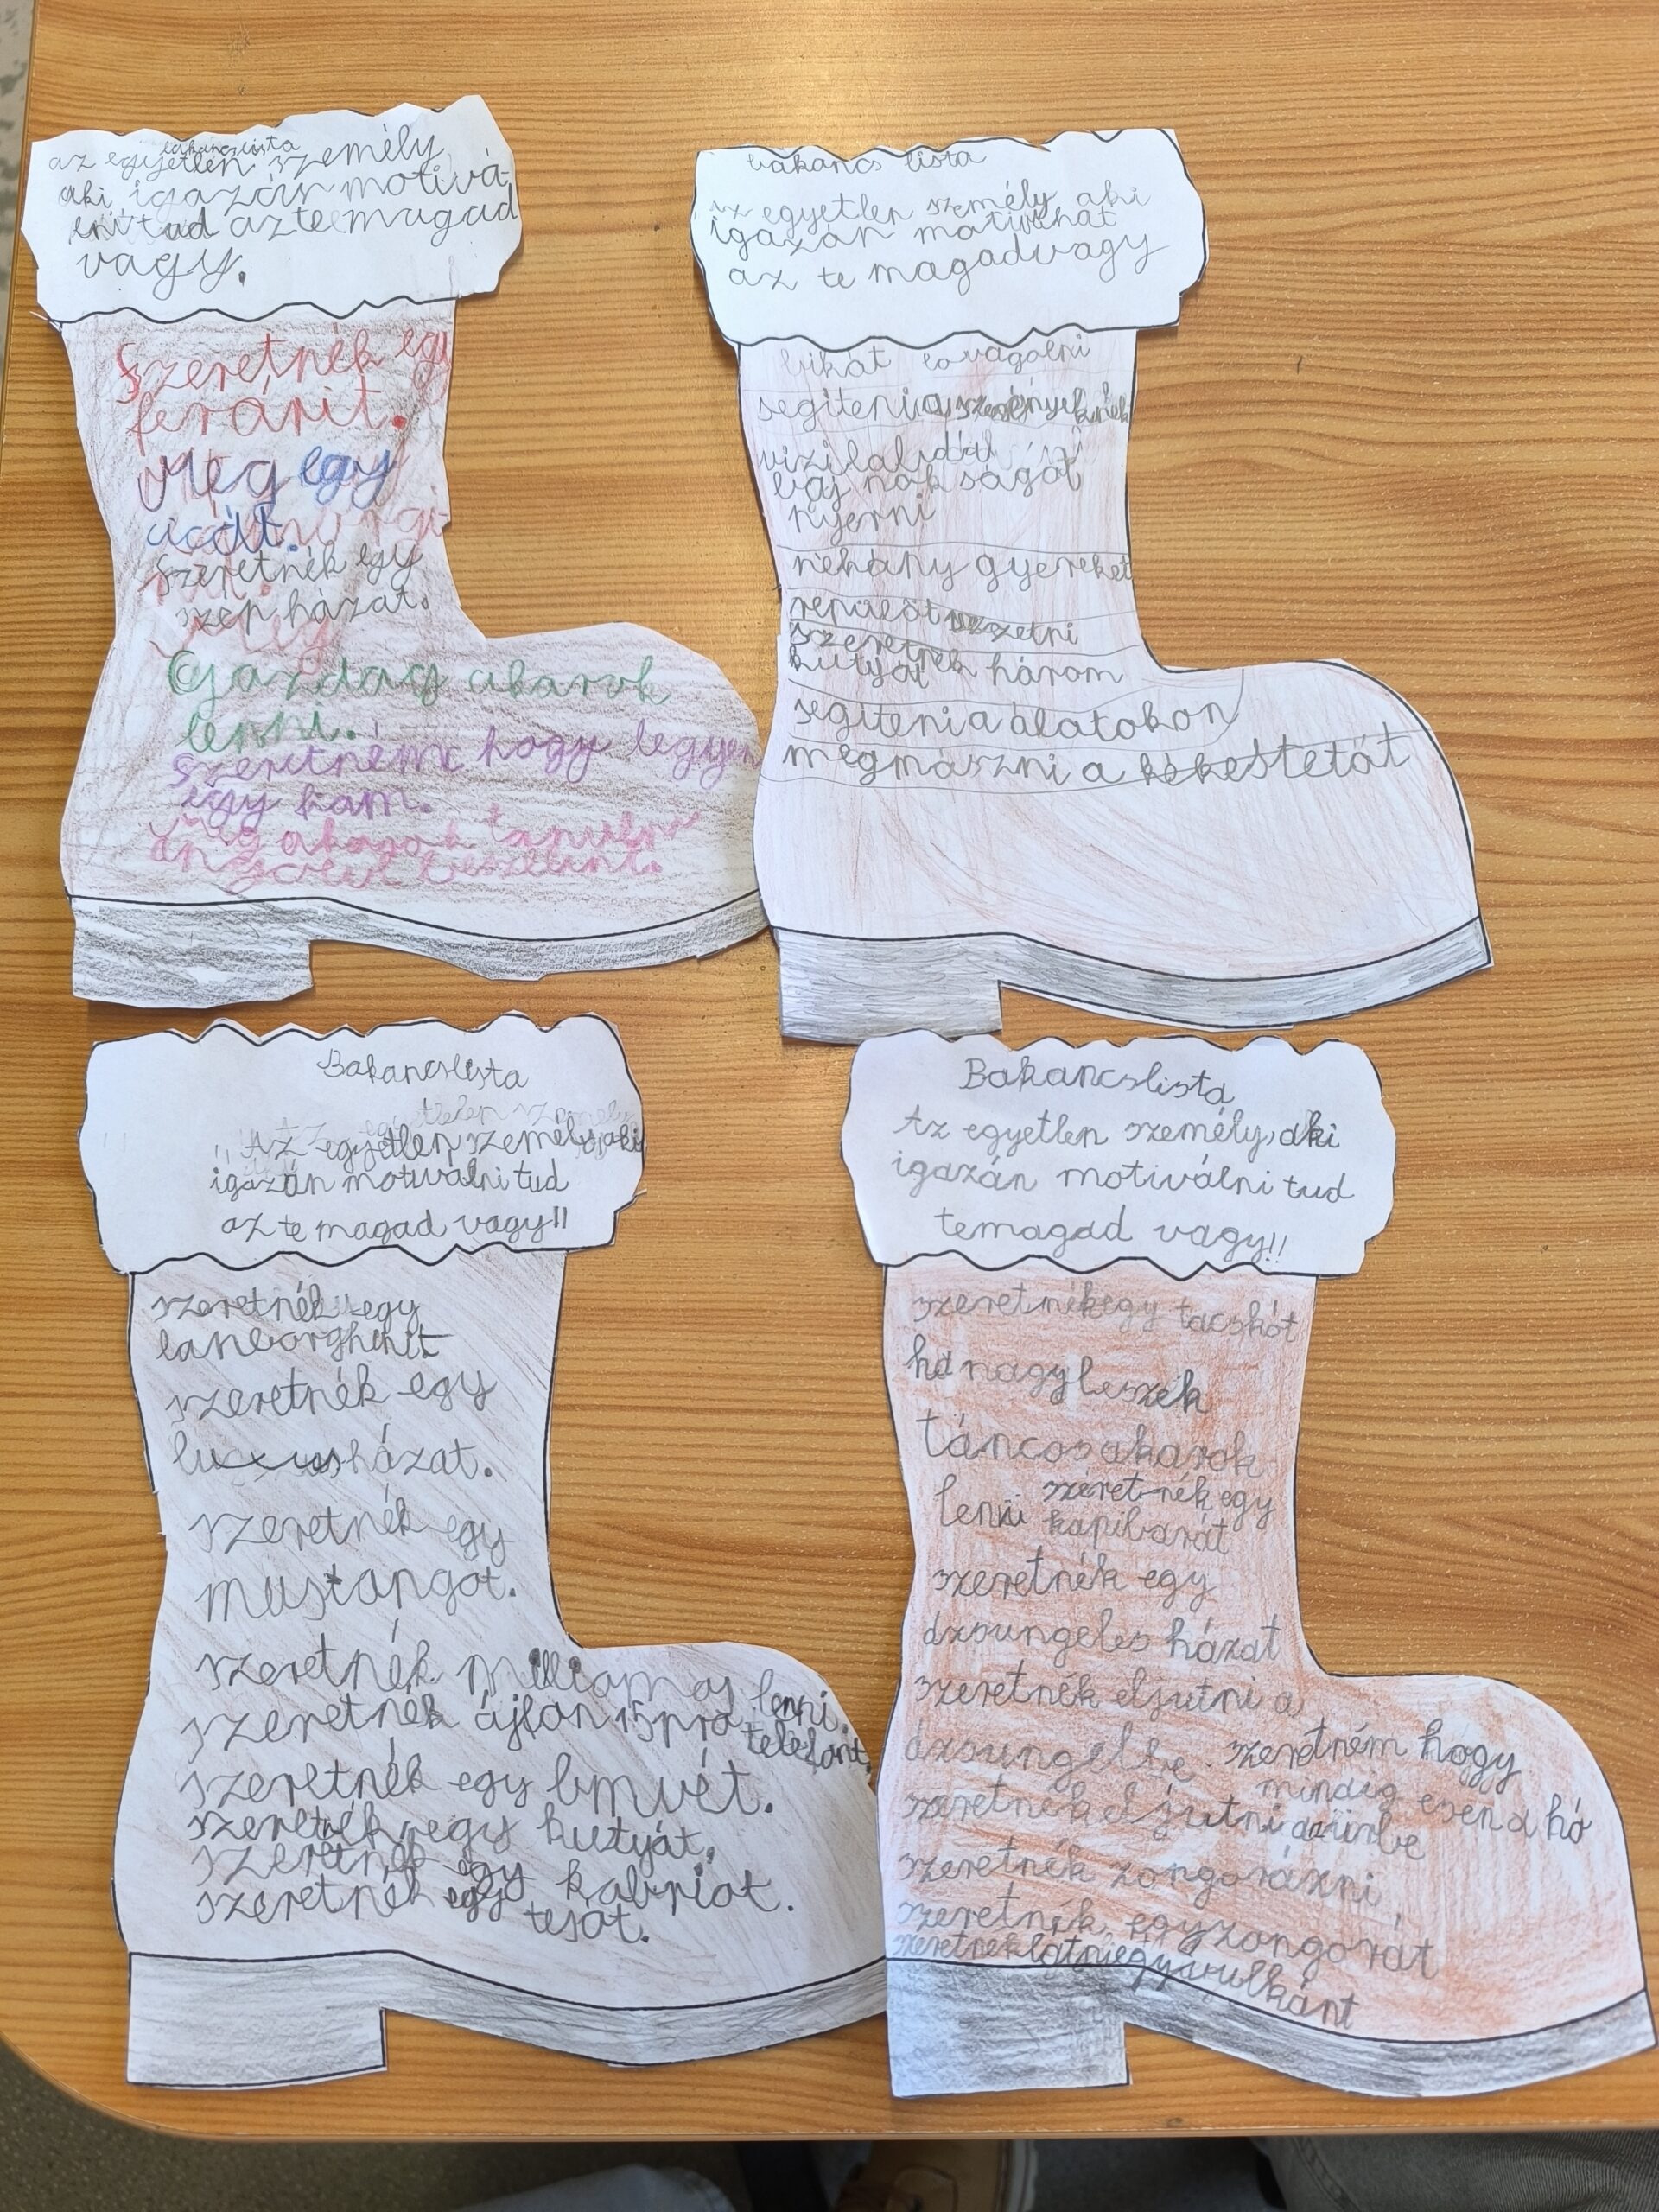 bakancslista
az egyetlen személy
aki igazán motivá-
lni tud az te magad
vagy.
Szeretnék egy
ferárit.
Meg egy
audit.
Szeretnék egy
szép házat.
Gazdag akarok
lenni.
Szeretném hogy legyen
egy ham.
Meg akarok tanulni
angolul beszélni.
bakancs lista
az egyetlen személy aki
igazán motiválhat
az te magadvagy
bikát lovagolni
segíteni a szegényeknek
vizilabdal
baj nok ságot
nyerni
néhány gyereket
repülőt vezetni
szeretnék
kutyát három
segíteni a álatokon
megmászni a kékestetőt
Bakancslista
„Az egyetlen személy, aki
igazán motiválni tud
az te magad vagy!!
szeretnék egy
lanborghinit
szeretnék egy
luxus házat.
szeretnék egy
mustangot.
szeretnék Milliomos lenni.
szeretnék ájfon 15 pro telefont.
szeretnék egy bmvét.
szeretnék egy kutyát.
szeretnék egy kabriot.
szeretnék egy
tesót.
Bakancslista
Az egyetlen személy, aki
igazán motiválni tud
temagad vagy!!
szeretnék egy tacskót
ha nagy leszek
táncos akarok
lenni szeret-nék egy
kapibarát
szeretnék egy
dzsungeles házat
szeretnék eljutni a
dzsungelbe. szeretném hogy
mindig esen a hó
szeretnék eljutni az űrbe
szeretnék zongorázni
szeretnék egy zongorát
szeretnék látni egy vulkánt